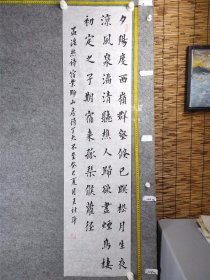 夕陽度西嶺群壑倏已暝松月生夜
涼風泉滿清聽樵人歸欲盡煙鳥棲
初定之子期宿來孤琴候蘿徑
孟浩然詩宿業師山房待丁大不至癸巳夏月王